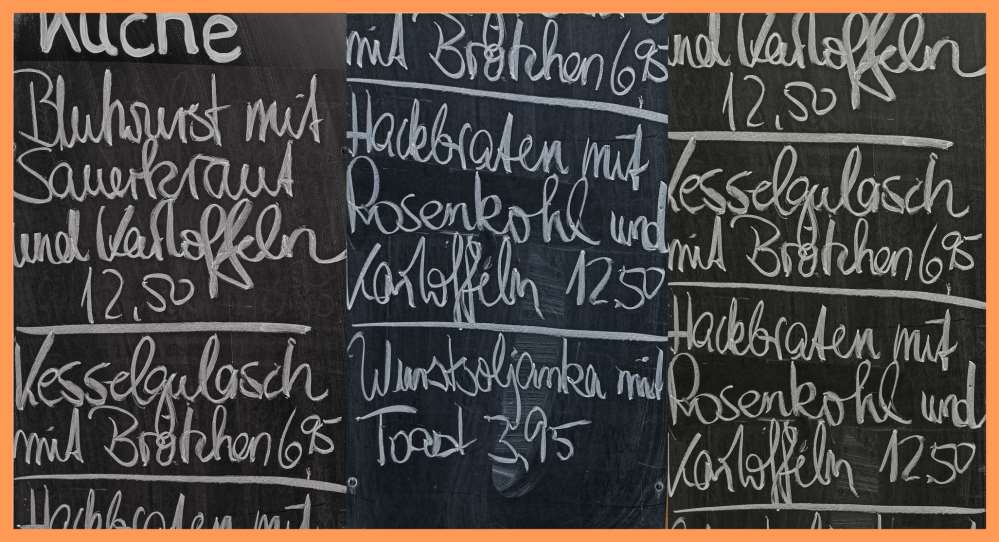 Küche
Bluhwurst mit
Sauerkraut
und Kartoffeln
12,50
Kesselgulasch
mit Brötchen 6,95
Hackbraten mit
mit Brötchen 6,95
Hackbraten mit
Rosenkohl und
Kartoffeln 12,50
Wurstsoljanka mit
Toast 3,95
und Kartoffeln
12,50
Kesselgulasch
mit Brötchen 6,95
Hackbraten mit
Rosenkohl und
Kartoffeln 12,50